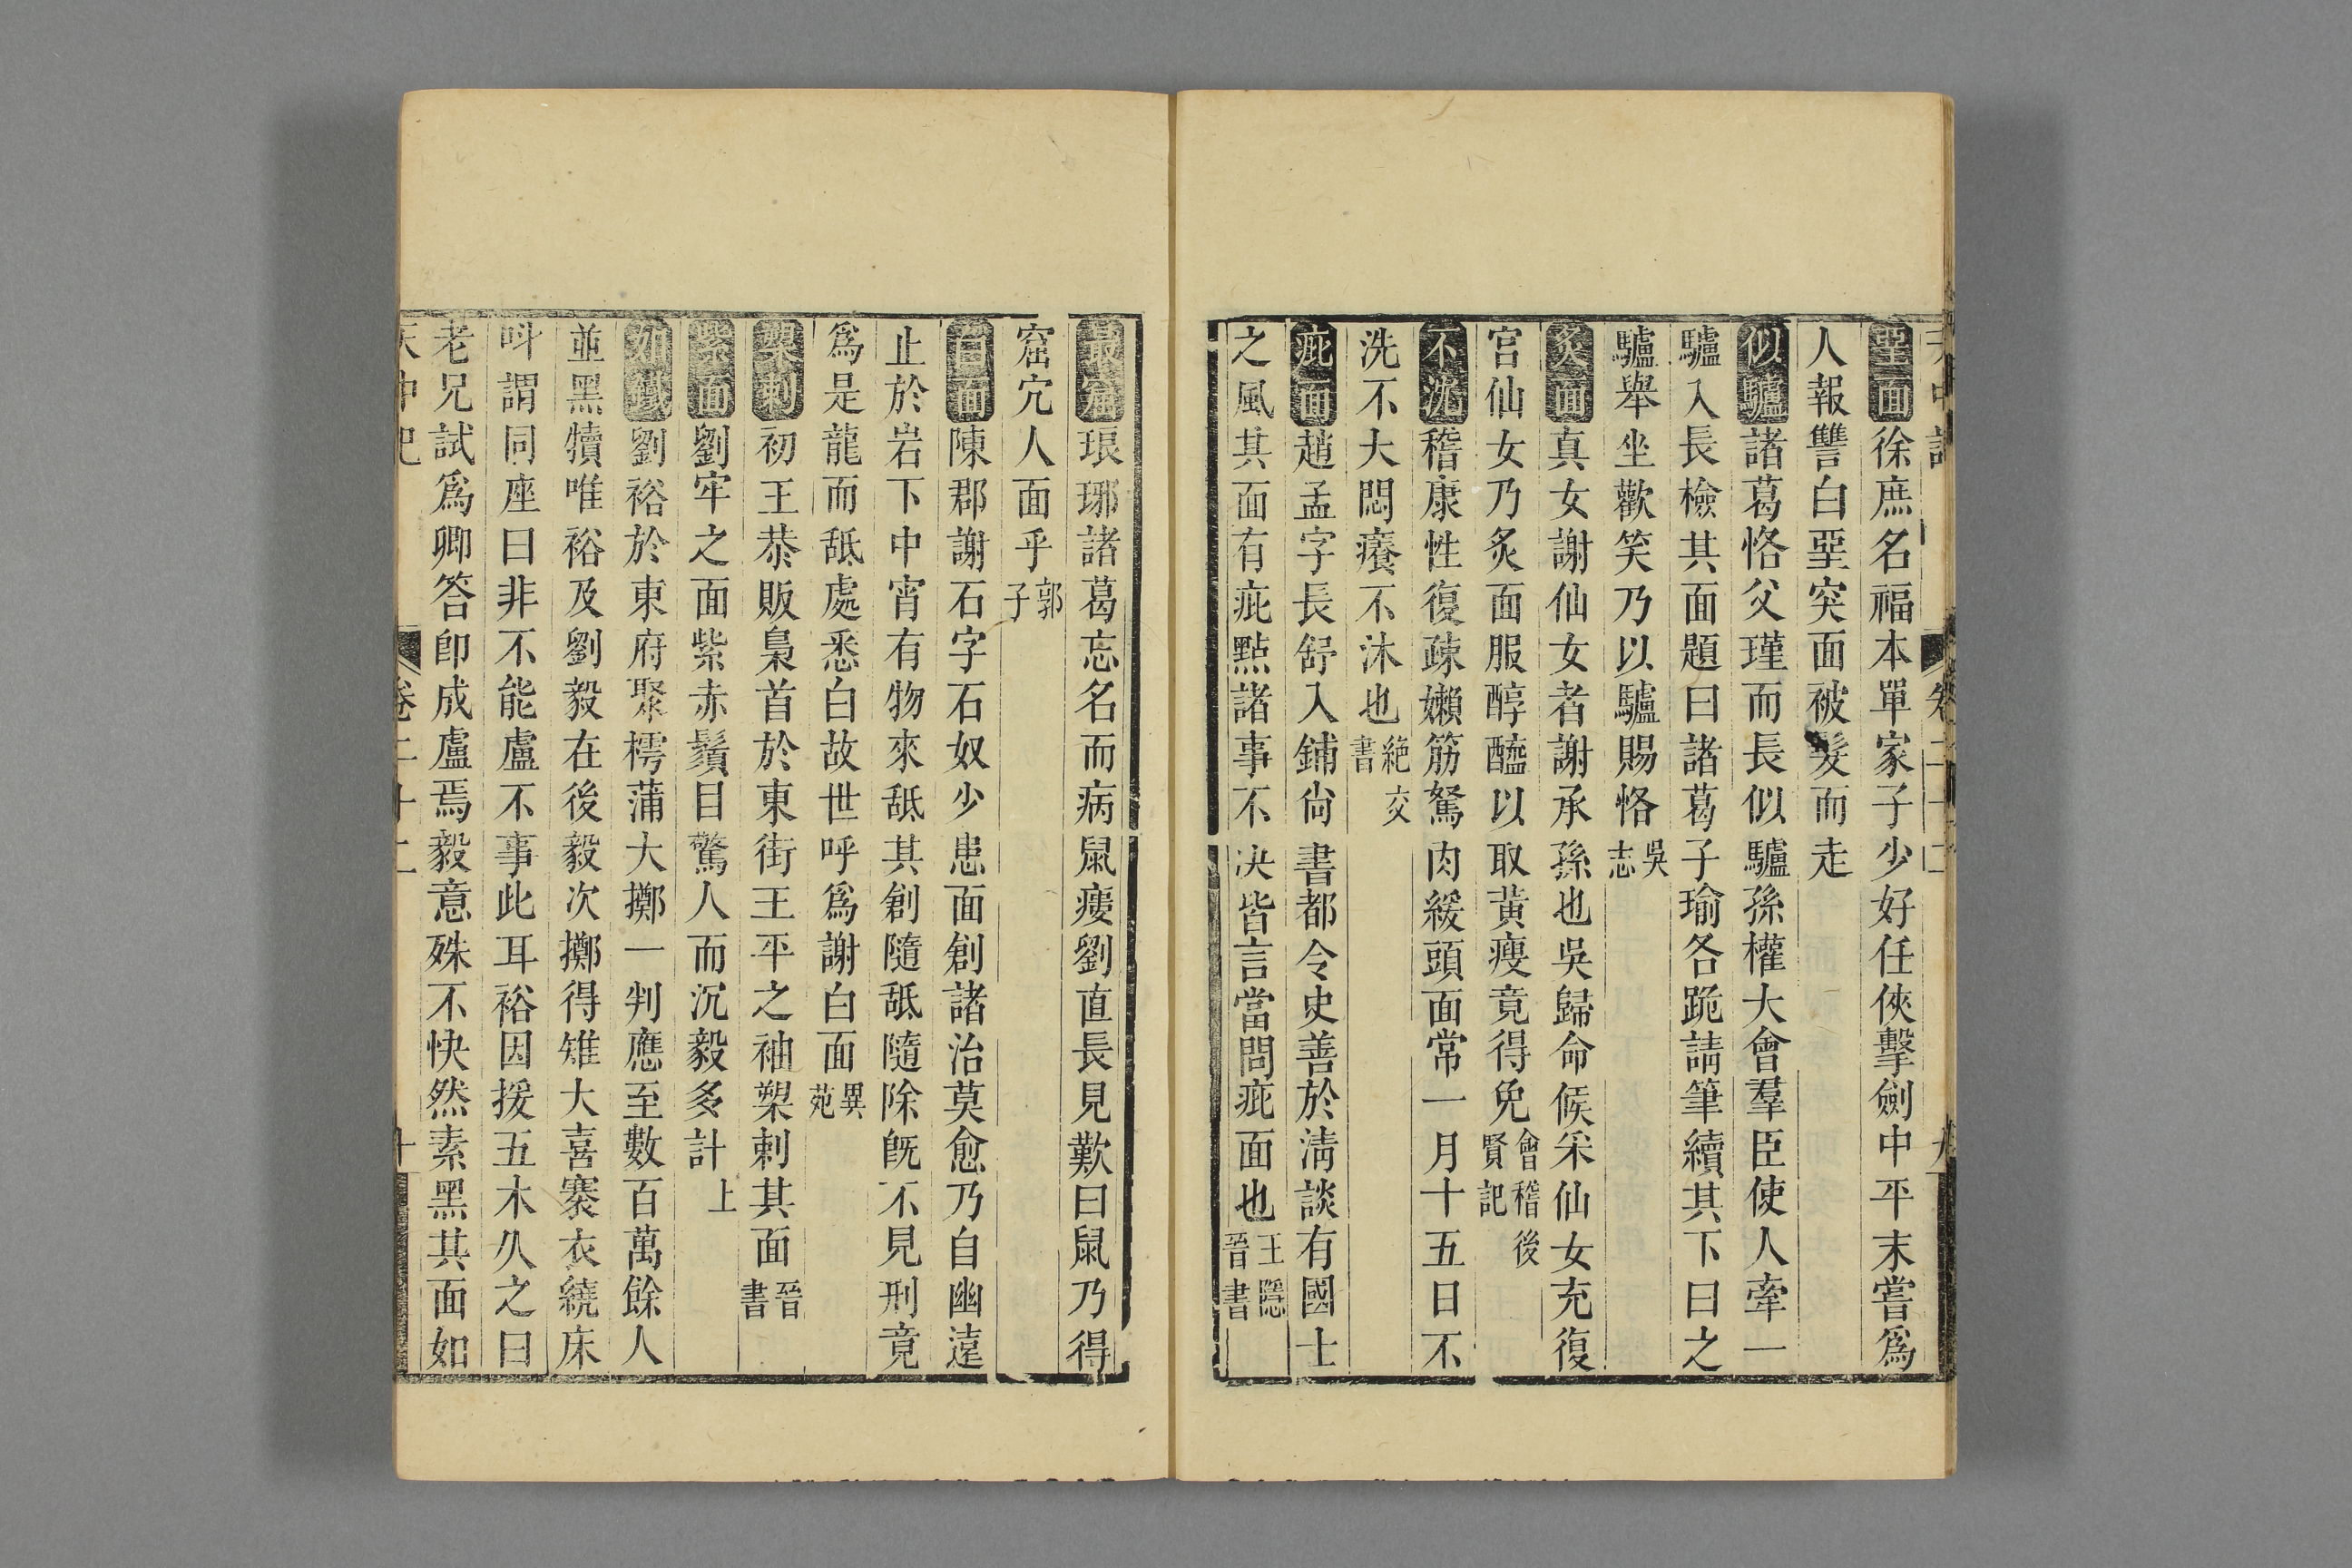 堊面徐庶名福本單家子少好任俠擊劍中平末嘗爲
人報讐白堊突面被髮而走
似驢諸葛恪父瑾而長似驢孫權大會羣臣使人牽一
驢入長檢其面題曰諸葛子瑜各跪請筆續其下曰之
驢舉坐歡笑乃以驢賜恪吳志
炙面真女謝仙女者謝承孫也吳歸命候采仙女充復
宮仙女乃炙面服醇醯以取黃瘦竟得免會稽後賢記
不沈稽康性復疎嬾筋駑肉緩頭面常一月十五日不
洗不大悶癢不沐也絶交書
疵面趙孟字長舒入鋪尙書都令史善於淸談有國士
之風其面有疵㸃諸事不决皆言當問疵面也王隱晉書
最窟琅琊諸葛忘名而病鼠瘻劉直長見歎曰鼠乃得
窟穴人面乎郭子
白面陳郡謝石字石奴少患面創諸治莫愈乃自幽遠
止於岩下中宵有物來舐其創隨舐隨除旣不見刑竟
爲是龍而舐處悉白故世呼爲謝白面異苑
槊刺初王恭販梟首於東街王平之袖槊刺其面晉書
紫面劉牢之面紫赤鬚目驚人而沉毅多計上
如鐵劉裕於東府聚樗蒲大擲一判應至數百萬餘人
並黑犢唯裕及劉毅在後毅次擲得雉大喜褰衣繞床
呌謂同座曰非不能盧不事此耳裕因援五木久之曰
老兄試爲卿答卽成盧焉毅意殊不快然素黑其面如
天中記
卷二十二
十